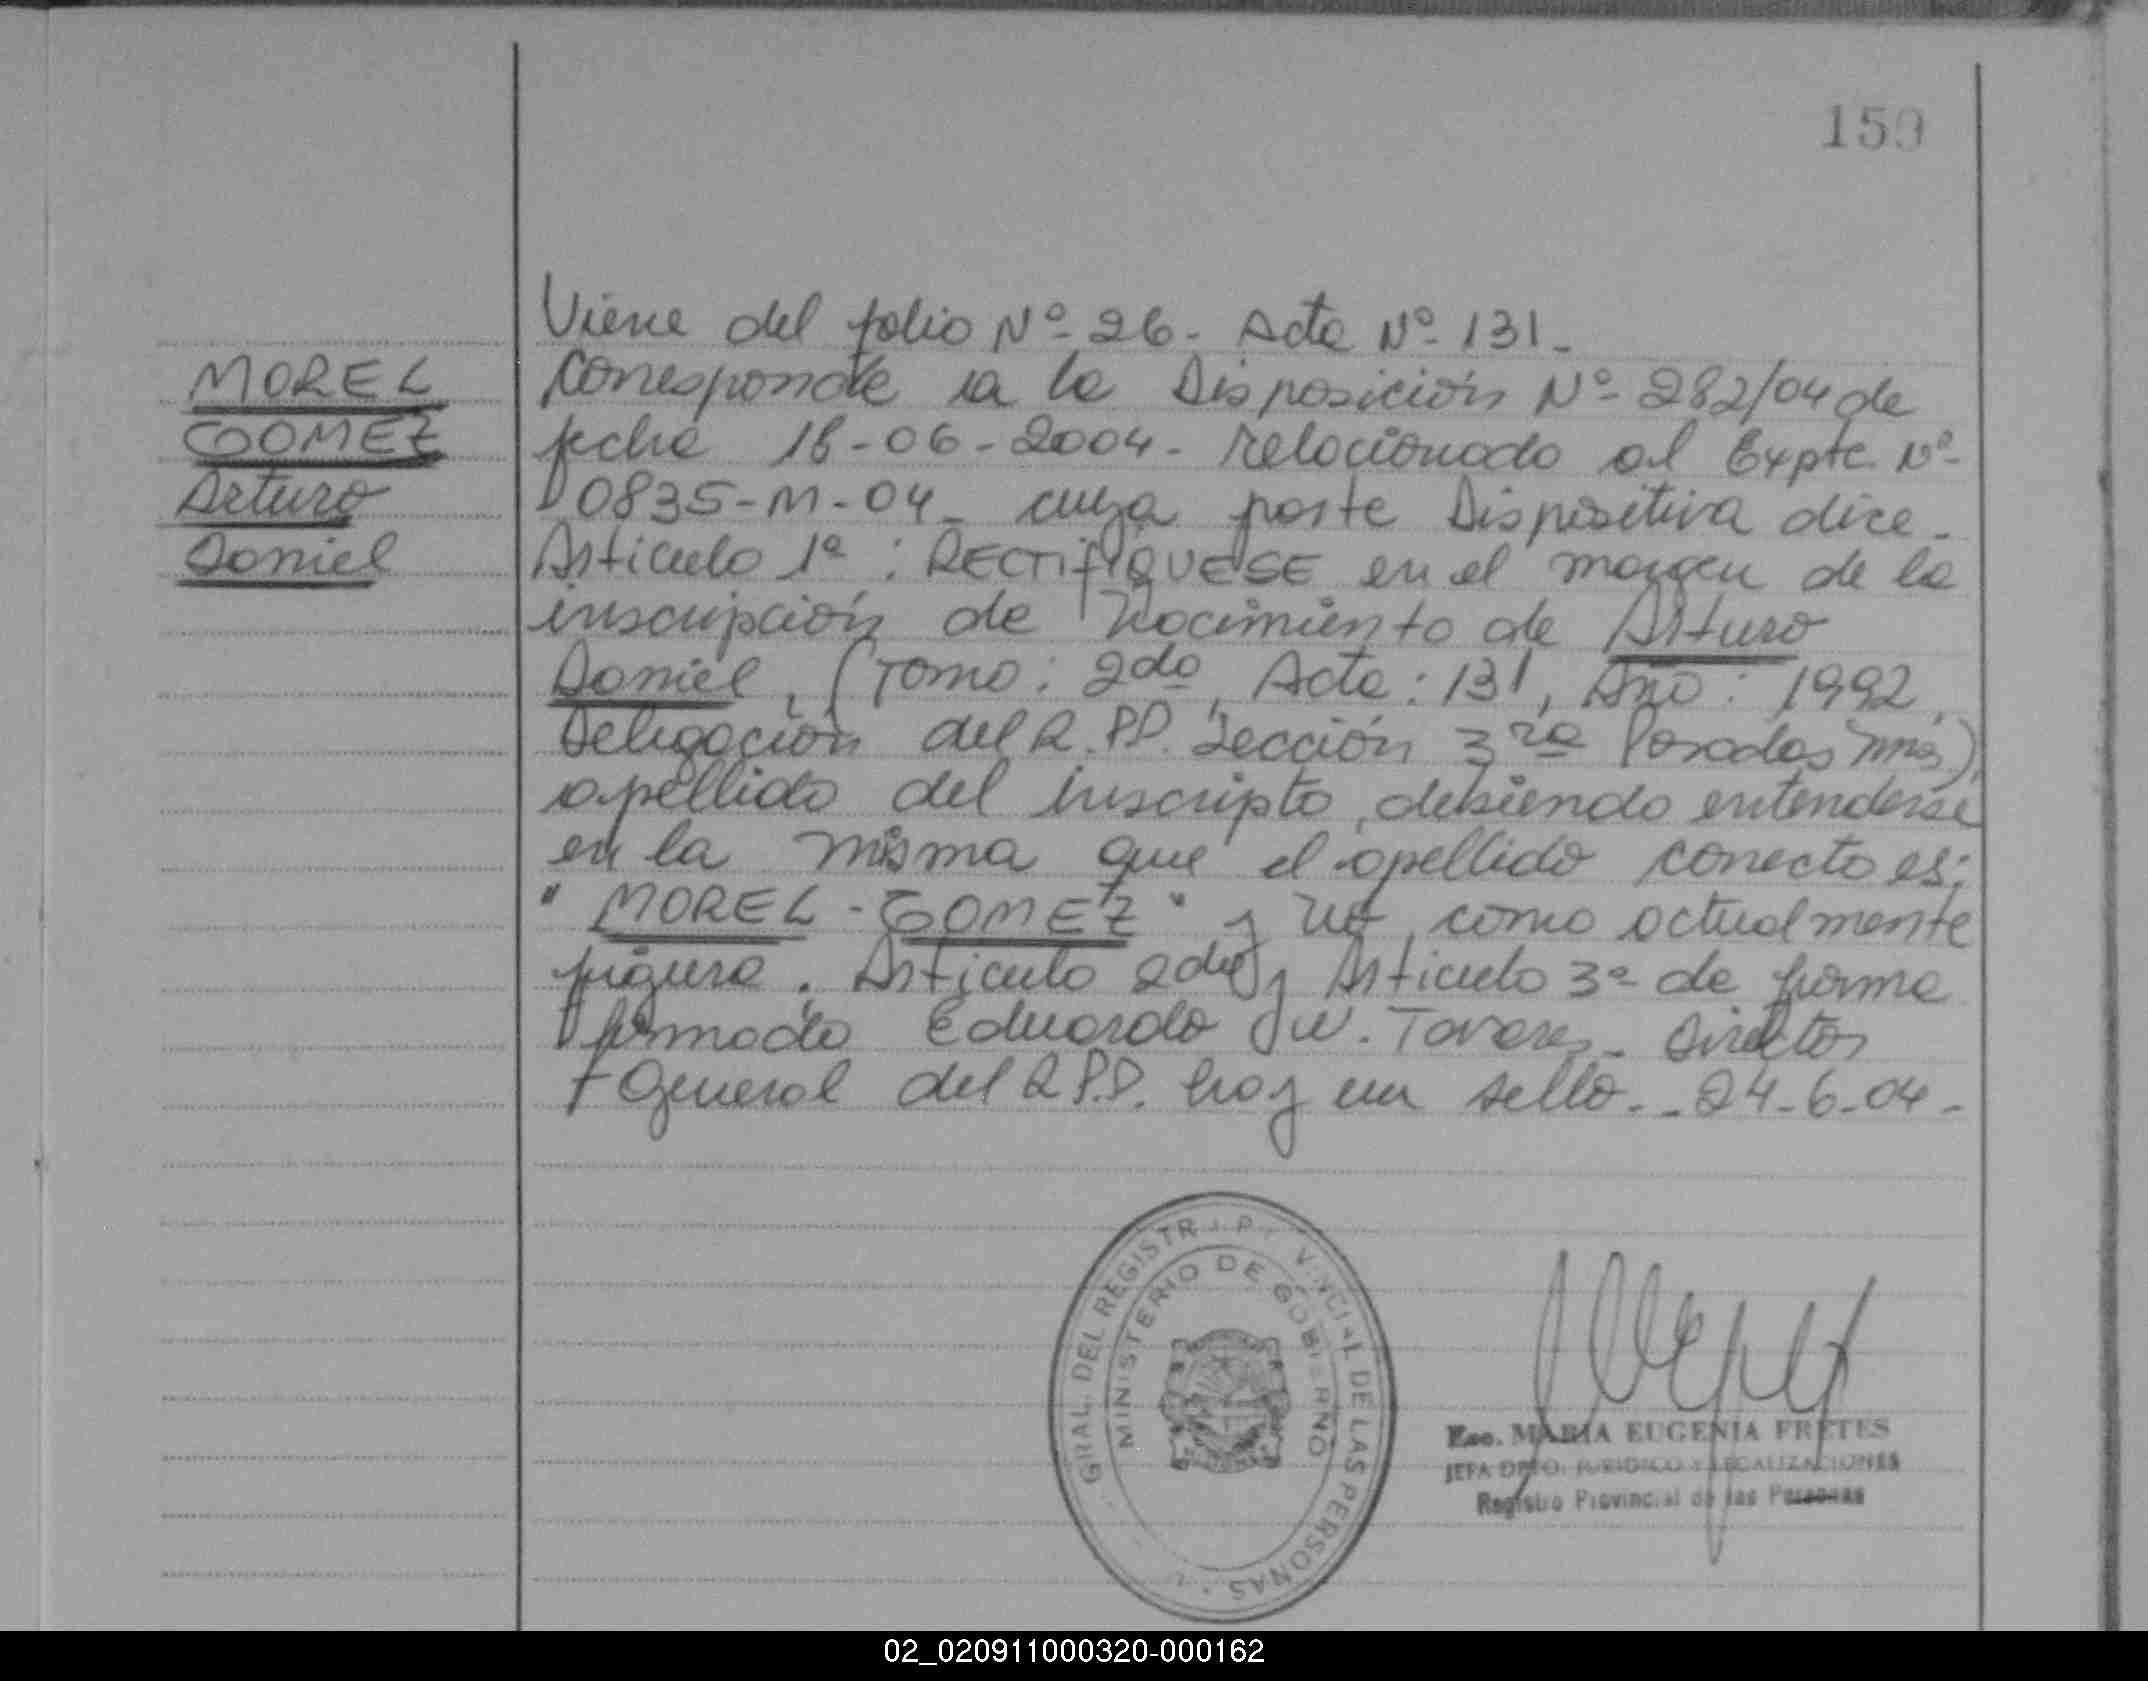 159
MOREL
GOMEZ
Arturo
Daniel
Viene del folio Nº 26- Acta Nº 131-
Corresponde a la Disposición Nº 282/04 de
fecha 18-06-2004- relacionado al Expte Nº
0835-M-04- cuya parte Dispositiva dice-
Articulo 1º: RECTIFIQUESE en el margen de la
inscripción de nacimiento de Arturo
Daniel, (Tomo: 2do, Acta: 131, Año: 1992,
Delegación del R.P.P. Sección 3ra Posadas Mnes)
apellido del inscripto, debiendo entenderse
en la misma que el apellido correcto es:
"MOREL-GOMEZ" y no, como actualmente
figura. Articulo 2do y Articulo 3º de forma
firmado Eduardo W. Tavares- Director
General del R.P.P. hay un sello.- 24-6-04-
GRAL. DEL REGISTRO PROVINCIAL DE LAS PERSONAS
MINISTERIO DE GOBIERNO
Esc. MARIA EUGENIA FRETES
JEFA DPTO. JURIDICO Y LEGALIZACIONES
Registro Provincial de las Personas
02_020911000320-000162